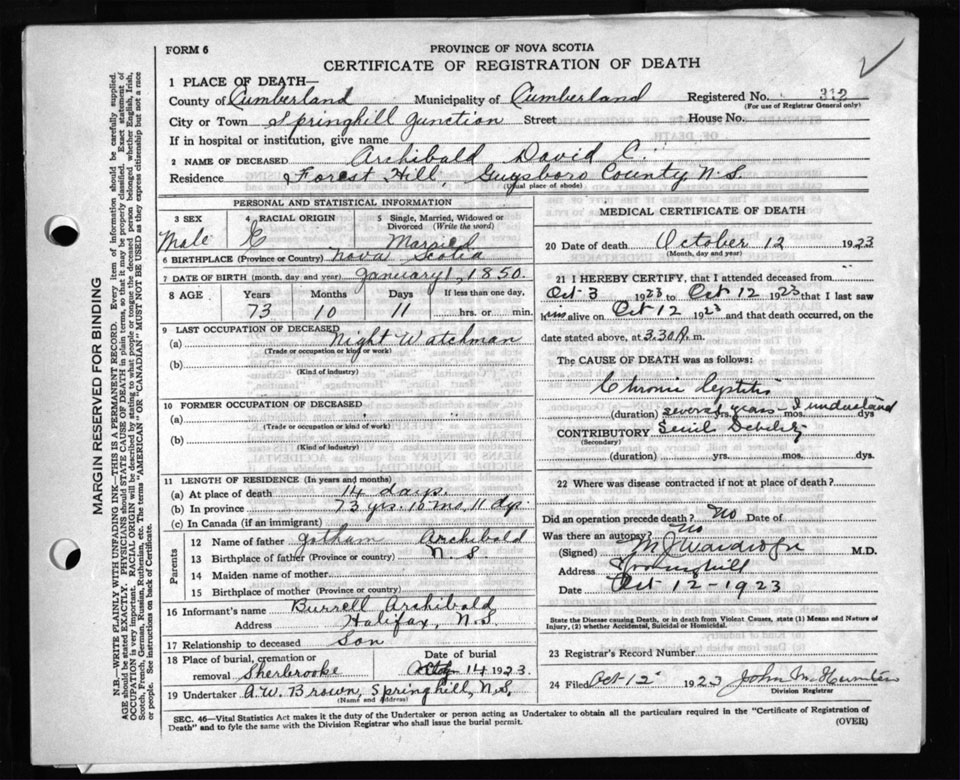 FORM 6
PROVINCE OF NOVA SCOTIA
CERTIFICATE OF REGISTRATION OF DEATH
1 PLACE OF DEATH—
County of Cumberland Municipality of Cumberland Registered No. 312
(For use of Registrar General only)
City or Town Springhill Junction Street House No.
If in hospital or institution, give name
2 NAME OF DECEASED Archibald David C.
Residence Forest Hill, Guysboro County N.S.
(Usual place of abode)
PERSONAL AND STATISTICAL INFORMATION
3 SEX Male
4 RACIAL ORIGIN
5 Single, Married, Widowed or Divorced (Write the word) Married
6 BIRTHPLACE (Province or Country) Nova Scotia
7 DATE OF BIRTH (month, day and year) January 1, 1850.
8 AGE Years Months Days If less than one day,
73 10 11 hrs. or min.
9 LAST OCCUPATION OF DECEASED
(a) Night Watchman
(Trade or occupation or kind or work)
(b)
(Kind of industry)
10 FORMER OCCUPATION OF DECEASED
(a)
(Trade or occupation or kind or work)
(b)
(Kind of industry)
11 LENGTH OF RESIDENCE (In years and months)
(a) At place of death 14 days.
(b) In province 73 yrs. 10 mo. 11 dys.
(c) In Canada (if an immigrant)
Parents
12 Name of father Jotham Archibald
13 Birthplace of father (Province or country) N.S
14 Maiden name of mother
15 Birthplace of mother (Province or country)
16 Informant's name Burrell Archibald
Address Halifax, N.S.
17 Relationship to deceased Son
18 Place of burial, cremation or removal Sherbrooke
Date of burial 14 1923.
19 Undertaker A.W. Brown, Springhill, N.S.
(Name and Address)
MEDICAL CERTIFICATE OF DEATH
20 Date of death October 12 1923
(Month, day and year)
21 I HEREBY CERTIFY, that I attended deceased from
Oct 3 1923 to Oct 12 1923 that I last saw
him alive on Oct 12 1923 and that death occurred, on
date stated above, at 3.30 A. m.
The CAUSE OF DEATH was as follows:
Chronic Cystitis
(duration) several years yrs. mos. I understand dys
CONTRIBUTORY Senile Debility
(Secondary)
(duration) yrs. mos. dys.
22 Where was disease contracted if not at place of death?
Did an operation precede death? No Date of
Was there an autopsy? No
(Signed) M J Wardrope M.D.
Address Springhill
Date Oct 12 - 1923
State the Disease causing Death, or in death from Violent Causes, state (1) Means and Nature of
Injury, (2) whether Accidental, Suicidal or Homicidal.
23 Registrar's Record Number
24 Filed Oct 12 1923 John M. Hunter
Division Registrar
SEC. 46—Vital Statistics Act makes it the duty of the Undertaker or person acting as Undertaker to obtain all the particulars required in the "Certificate of Registration of
Death" and to fyle the same with the Division Registrar who shall issue the burial permit.
(OVER)
MARGIN RESERVED FOR BINDING
N.B.—WRITE PLAINLY WITH UNFADING INK—THIS IS A PERMANENT RECORD. Every item of information should be carefully supplied.
AGE should be stated EXACTLY. PHYSICIANS should STATE CAUSE OF DEATH in plain terms, so that it may be properly classified. Exact statement of
OCCUPATION is very important. RACIAL ORIGIN will be described by stating to what people or tongue the deceased person belonged whether English, Irish,
Scotch, French, German, Russian, Ruthenian, etc. The terms "AMERICAN" OR "CANADIAN" MUST NOT BE USED as they express citizenship but not a race
or people. See instructions on back of Certificate.